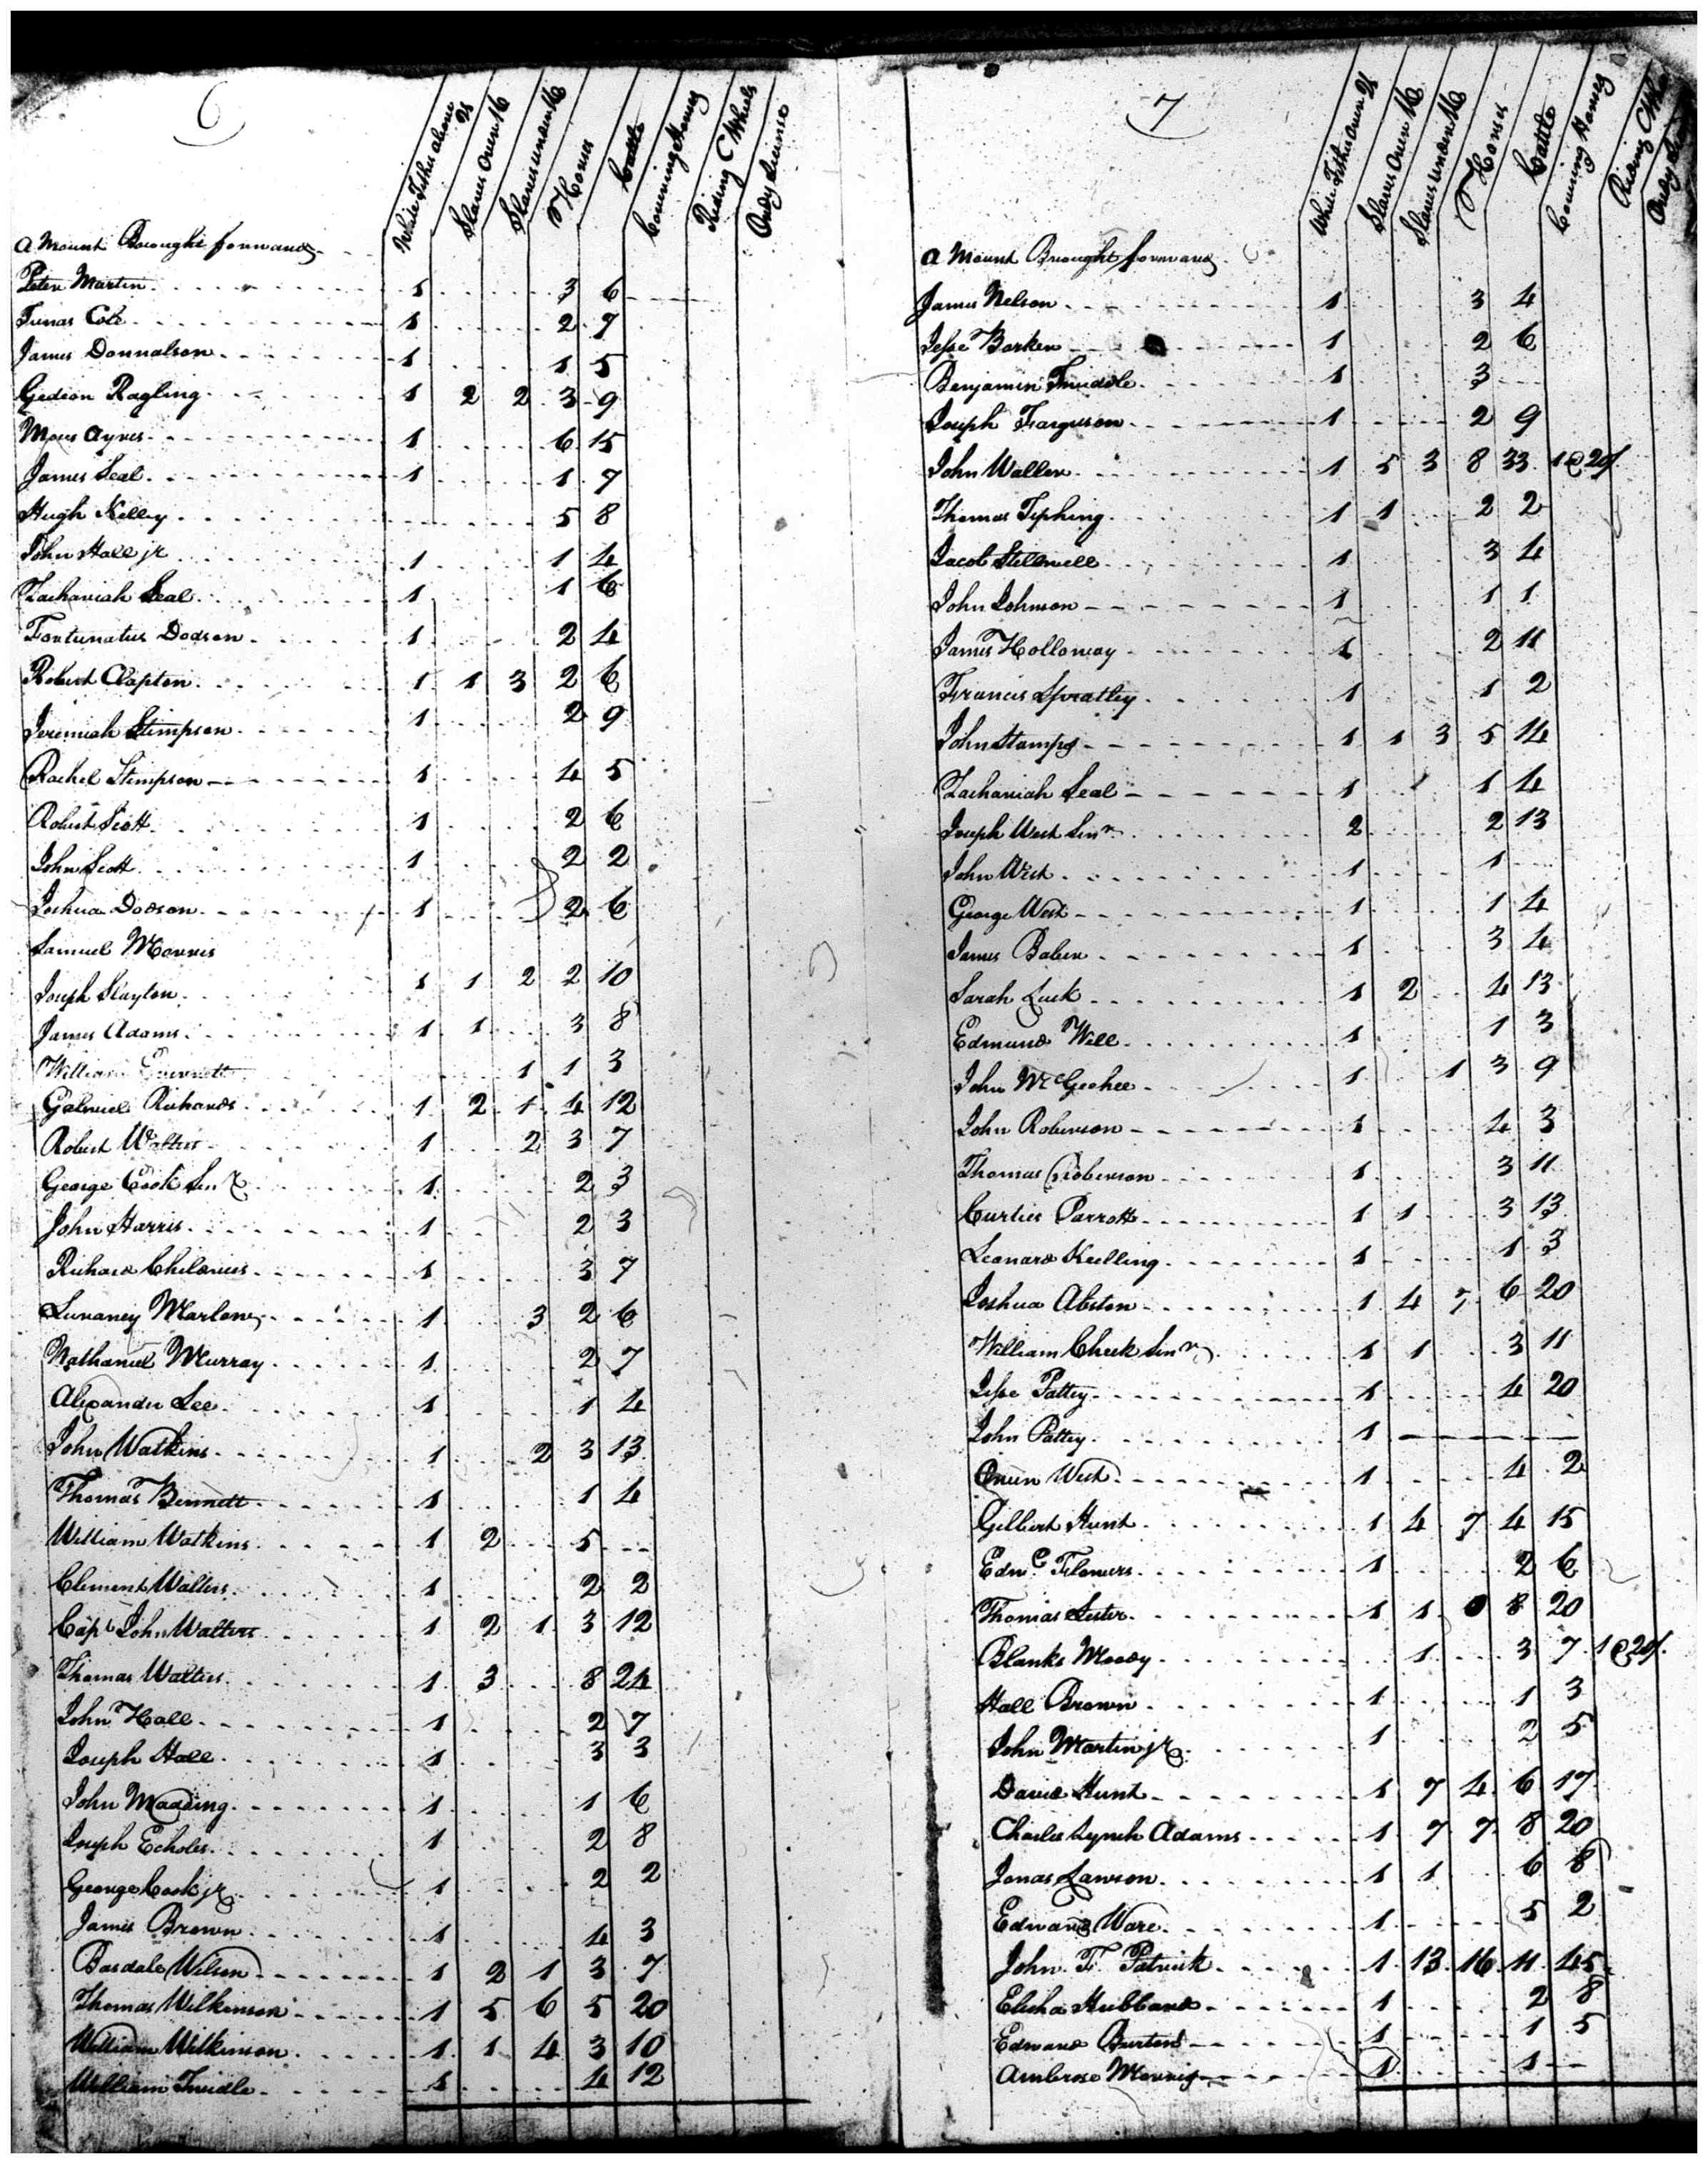 6
White Tithes above 21
Slaves Over 16
Slaves under 16
Horses
Cattle
Covering Horses
Riding C Wheels
Ordy License
a Mount Brought forward
Peter Martin 1 3 6
Tunas Cole 1 2 7
James Donnalson 1 1 5
Gedion Ragling 1 2 2 3 9
Moses Ayres 1 6 15
James Seal 1 1 7
Hugh Kelley 5 8
John Hall jr 1 1 4
Zachariah Seal 1 1 6
Fortunatus Dodson 1 2 4
Robert Clapton 1 1 3 2 6
Jeremiah Stimpson 1 2 9
Rachel Stimpson 1 4 5
Robert Scott 1 2 6
John Scott 1 2 2
Joshua Dodson 1 2 6
Samuel Morris
Joseph Slayton 1 1 2 2 10
James Adams 1 1 3 8
William 1 1 3
Gabriel Richards 1 2 1 4 12
Robert Walters 1 2 3 7
George Cook Senr 1 2 3
John Harris 1 2 3
Richard Childress 1 3 7
Marlow 1 3 2 6
Nathaniel Murray 1 2 7
Alexander Lee 1 1 4
John Watkins 1 2 3 13
Thomas Bennett 1 1 4
William Watkins 1 2 5
Clement Walters 1 2 2
Capt John Walters 1 2 1 3 12
Thomas Walters 1 3 8 24
John Hall 1 2 7
Joseph Hall 1 3 3
John Madding 1 1 6
Joseph Echoles 1 2 8
George Cook jr 1 2 2
James Brown 1 4 3
Basdale Wilson 1 2 1 3 7
Thomas Wilkinson 1 5 6 5 20
William Wilkinson 1 1 4 3 10
William Twidle 1 4 12
7
White Tithes Over 21
Slaves Over 16
Slaves under 16
Horses
Cattle
Covering Horses
Riding C Whe
Ordy
a Mount Brought forward
James Nelson 1 3 4
Jesse Barker 1 2 6
Benjamin Twidole 1 3
Joseph Farguson 1 2 9
John Waller 1 5 3 8 33 1 @ 20/
Thomas Tiphing 1 1 2 2
Jacob Stillwell 1 3 4
John Johnson 1 1 1
James Holloway 1 2 11
Francis Spratley 1 1 2
John Stamps 1 1 3 5 14
Zachariah Seal 1 1 4
Joseph West Senr 2 2 13
John West 1 1
George West 1 1 4
James Baber 1 3 4
Sarah Luck 1 2 4 13
Edmund Well 1 1 3
John McGeehee 1 1 3 9
John Roberson 1 4 3
Thomas Roberson 1 3 11
Curties Parrott 1 1 3 13
Leonard Keelling 1 1 3
Joshua Abston 1 4 7 6 20
William Cheek Senr 1 1 3 11
Jesse Pattey 1 4 20
John Pattey 1
Owen West 1 4 2
Gilbert Hunt 1 4 7 4 15
Edwd Flowers 1 2 6
Thomas Lester 1 1 8 20
Blanks Moody 1 3 7 1 @ 20/
Hall Brown 1 1 3
John Martin jr 1 2 5
David Hunt 1 7 4 6 17
Charles Lynch Adams 1 7 7 8 20
Jonas Lawson 1 1 6 8
Edward Ware 1 5 2
John F Patrick 1 13 16 11 45
Elisha Hubbard 1 2 8
Edward Burton 1 1 5
Ambrose 1 1